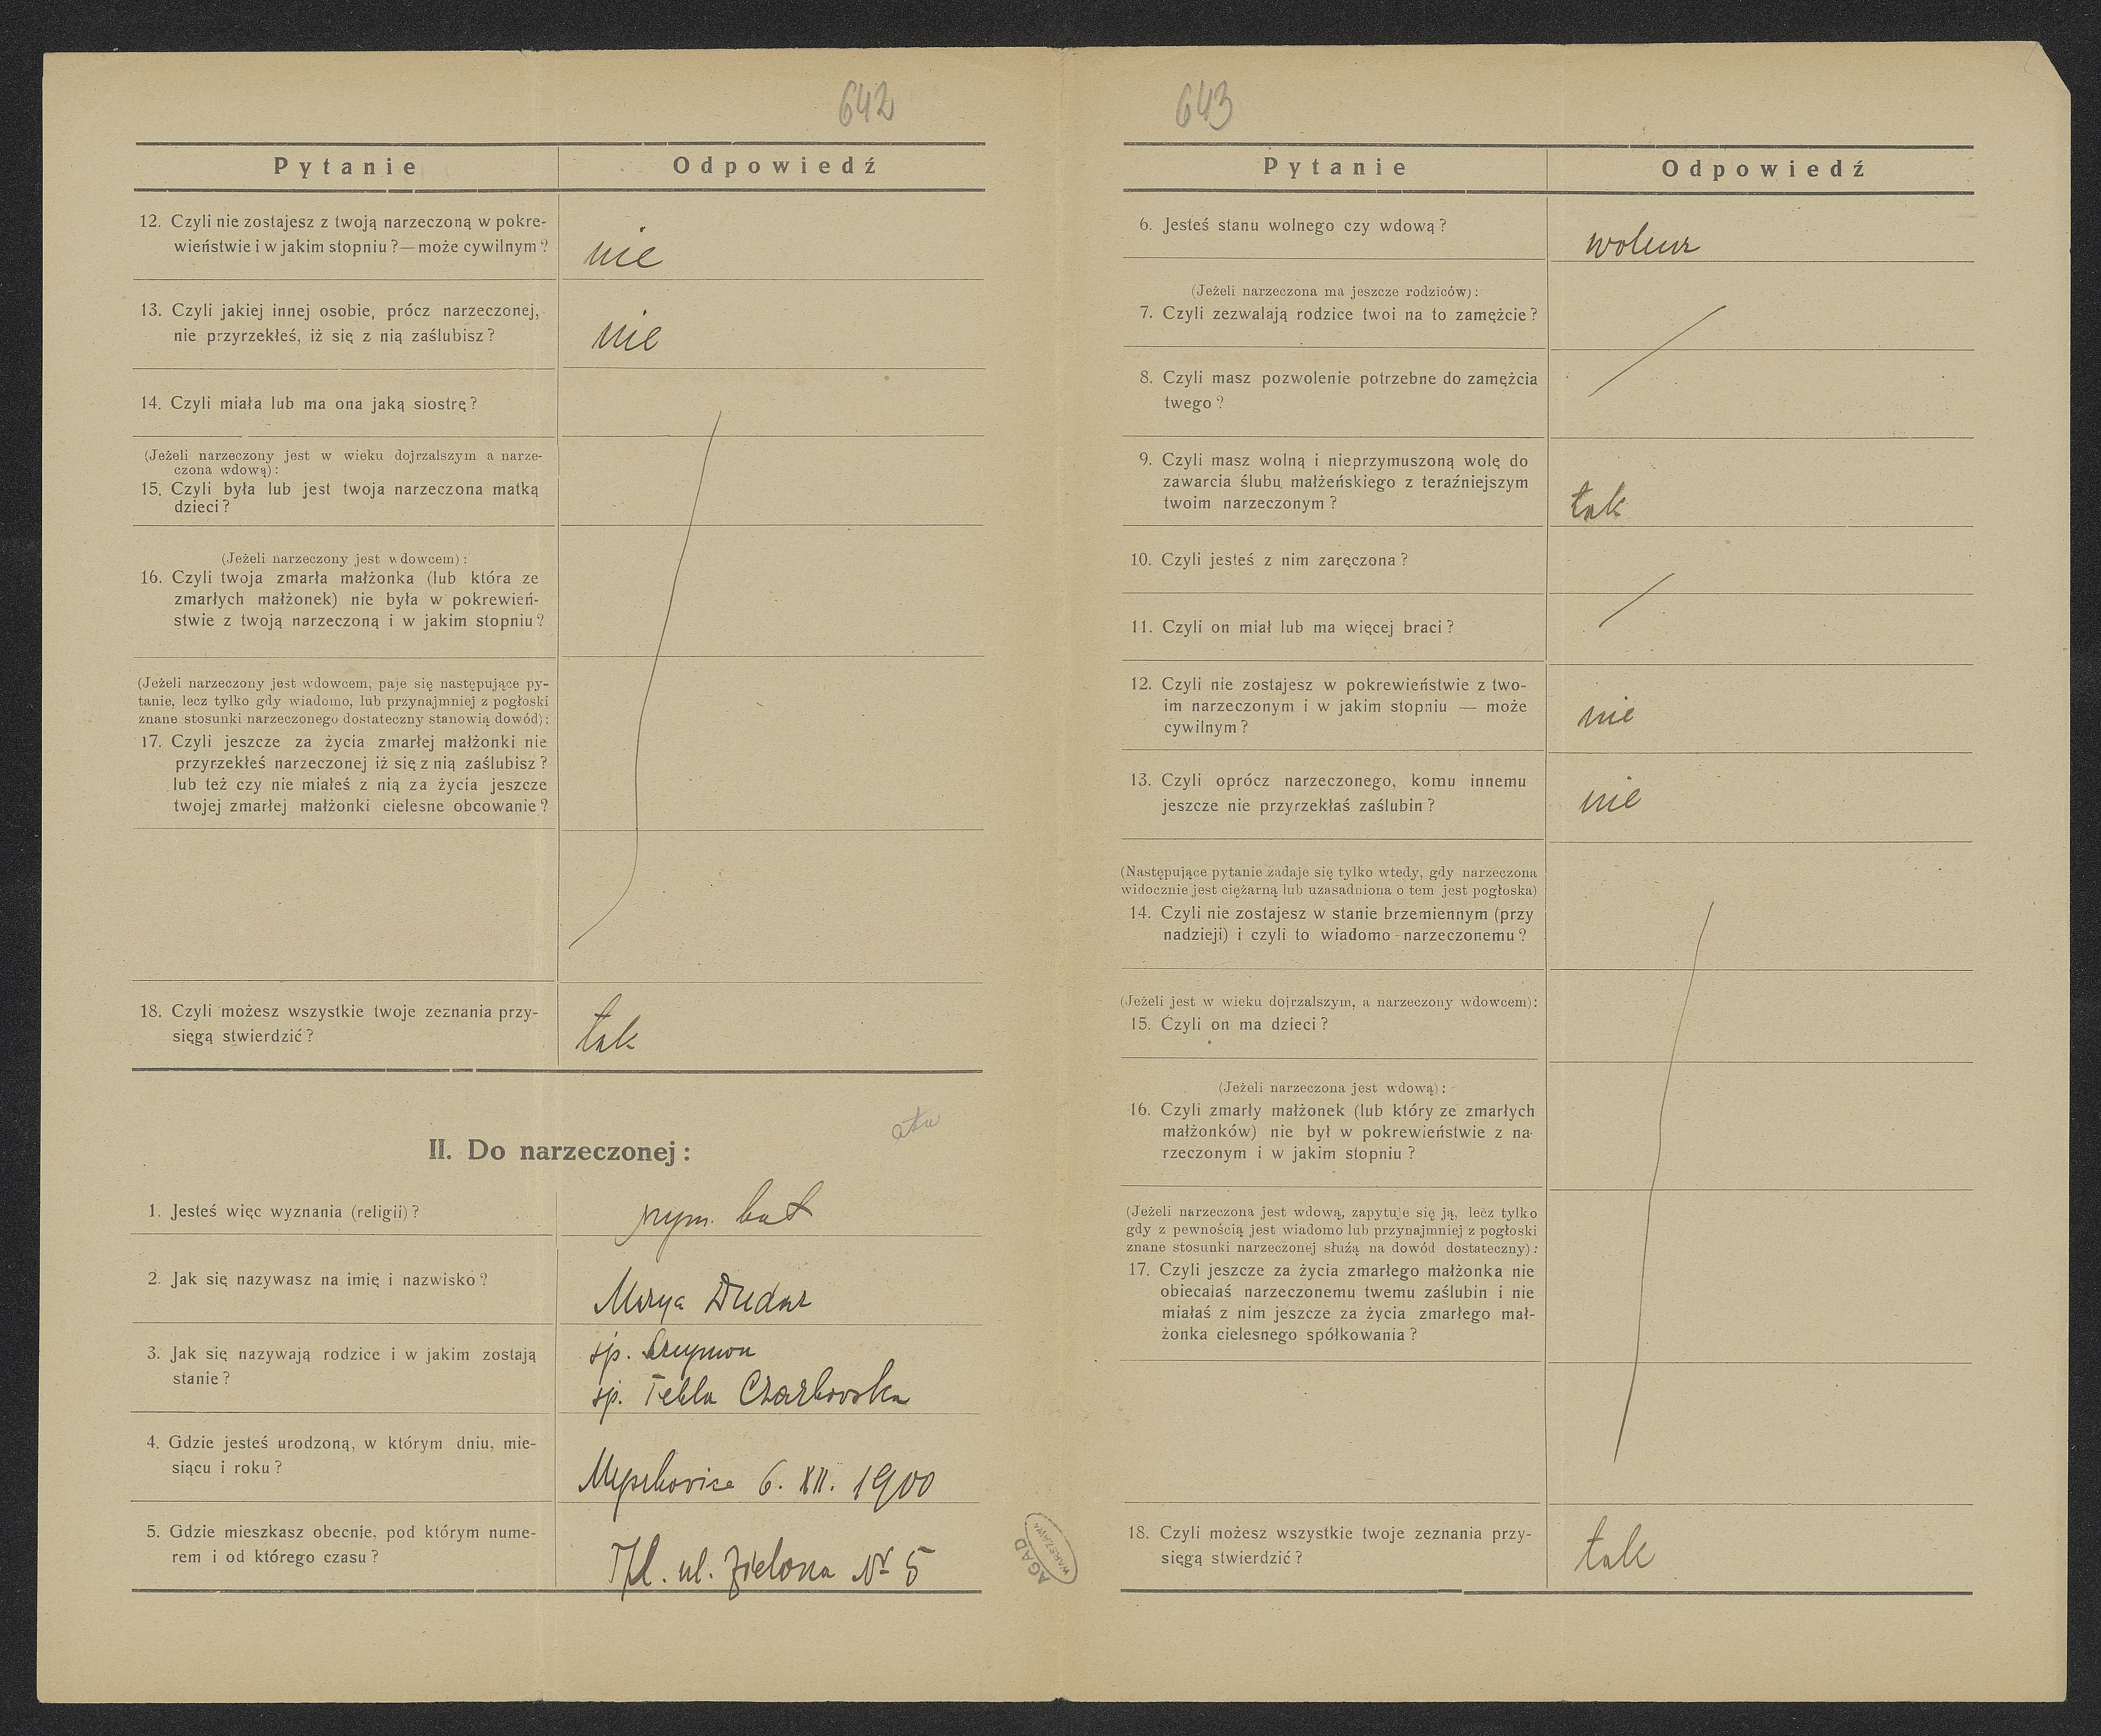 642
Pytanie Odpowiedź
12. Czyli nie zostajesz z twoją narzeczoną w pokre-
wieństwie i w jakim stopniu ?—może cywilnym ?
nie
13. Czyli jakiej innej osobie, prócz narzeczonej,
nie przyrzekłeś, iż się z nią zaślubisz ?
nie
14. Czyli miała lub ma ona jaką siostrę ?
(Jeżeli narzeczony jest w wieku dojrzalszym a narze-
czona wdową) :
15. Czyli była lub jest twoja narzeczona matką
dzieci ?
(Jeżeli narzeczony jest wdowcem) :
16. Czyli twoja zmarła małżonka (lub która ze
zmarłych małżonek) nie była w pokrewień-
stwie z twoją narzeczoną i w jakim stopniu ?
(Jeżeli narzeczony jest wdowcem, paje się następujące py-
tanie, lecz tylko gdy wiadomo, lub przynajmniej z pogłoski
znane stosunki narzeczonego dostateczny stanowią dowód) :
17. Czyli jeszcze za życia zmarłej małżonki nie
przyrzekłeś narzeczonej iż się z nią zaślubisz ?
lub też czy nie miałeś z nią za życia jeszcze
twojej zmarłej małżonki cielesne obcowanie ?
18. Czyli możesz wszystkie twoje zeznania przy-
sięgą stwierdzić ?
tak
II. Do narzeczonej :
1. Jesteś więc wyznania (religii) ?
rzym. kat
2. Jak się nazywasz na imię i nazwisko ?
Marya Dudar
3. Jak się nazywają rodzice i w jakim zostają
stanie ?
śp. Szymon
śp. Tekla Czarkowska
4. Gdzie jesteś urodzoną, w którym dniu, mie-
siącu i roku ?
6. XII. 1900
5. Gdzie mieszkasz obecnie, pod którym nume-
rem i od którego czasu ?
Tpl. ul. Zielona Nr 5
AGAD
WARSZAWA
643
Pytanie Odpowiedź
6. Jesteś stanu wolnego czy wdową ?
wolna
(Jeżeli narzeczona ma jeszcze rodziców) :
7. Czyli zezwalają rodzice twoi na to zamężcie ?
8. Czyli masz pozwolenie potrzebne do zamężcia
twego ?
9. Czyli masz wolną i nieprzymuszoną wolę do
zawarcia ślubu małżeńskiego z teraźniejszym
twoim narzeczonym ?
tak
10. Czyli jesteś z nim zaręczona ?
11. Czyli on miał lub ma więcej braci ?
12. Czyli nie zostajesz w pokrewieństwie z two-
im narzeczonym i w jakim stopniu — może
cywilnym ?
nie
13. Czyli oprócz narzeczonego, komu innemu
jeszcze nie przyrzekłaś zaślubin ?
nie
(Następujące pytanie zadaje się tylko wtedy, gdy narzeczona
widocznie jest ciężarną lub uzasadniona o tem jest pogłoska)
14. Czyli nie zostajesz w stanie brzemiennym (przy
nadzieji) i czyli to wiadomo narzeczonemu ?
(Jeżeli jest w wieku dojrzalszym, a narzeczony wdowcem) :
15. Czyli on ma dzieci ?
(Jeżeli narzeczona jest wdową) :
16. Czyli zmarły małżonek (lub który ze zmarłych
małżonków) nie był w pokrewieństwie z na-
rzeczonym i w jakim stopniu ?
(Jeżeli narzeczona jest wdową, zapytuje się ją, lecz tylko
gdy z pewnością jest wiadomo lub przynajmniej z pogłoski
znane stosunki narzeczonej służą na dowód dostateczny) :
17. Czyli jeszcze za życia zmarłego małżonka nie
obiecałaś narzeczonemu twemu zaślubin i nie
miałaś z nim jeszcze za życia zmarłego mał-
żonka cielesnego spółkowania ?
18. Czyli możesz wszystkie twoje zeznania przy-
sięgą stwierdzić ?
tak